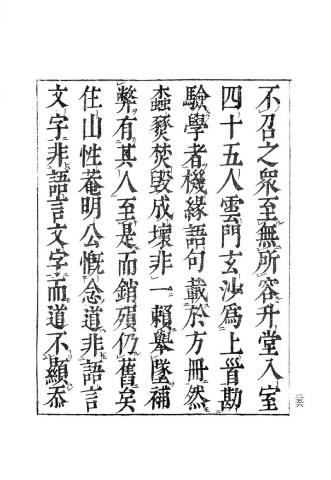 不召之衆至無所容升堂入室
四十五人雲門玄沙爲上首勘
驗學者機緣語句載於方冊然
蟊䝤焚毀成壞非一賴舉墜補
弊有其人至是而銷殞仍舊矣
住山性菴明公慨念道非語言
文字非語言文字而道不顯忝
二六